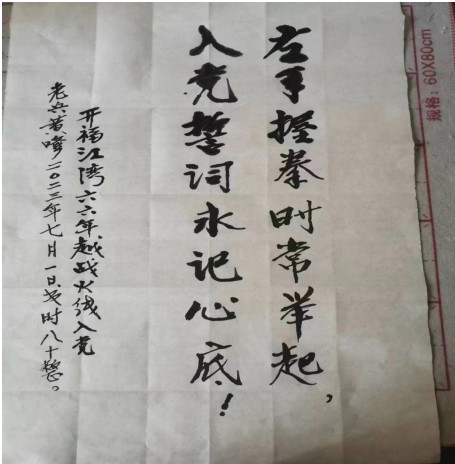 左手握拳时常举起，
入党誓词永记心底！
开福江湾六六年越战火线入党
老兵黄 二〇二三年七月一日 时八十整。
规格：60X80cm